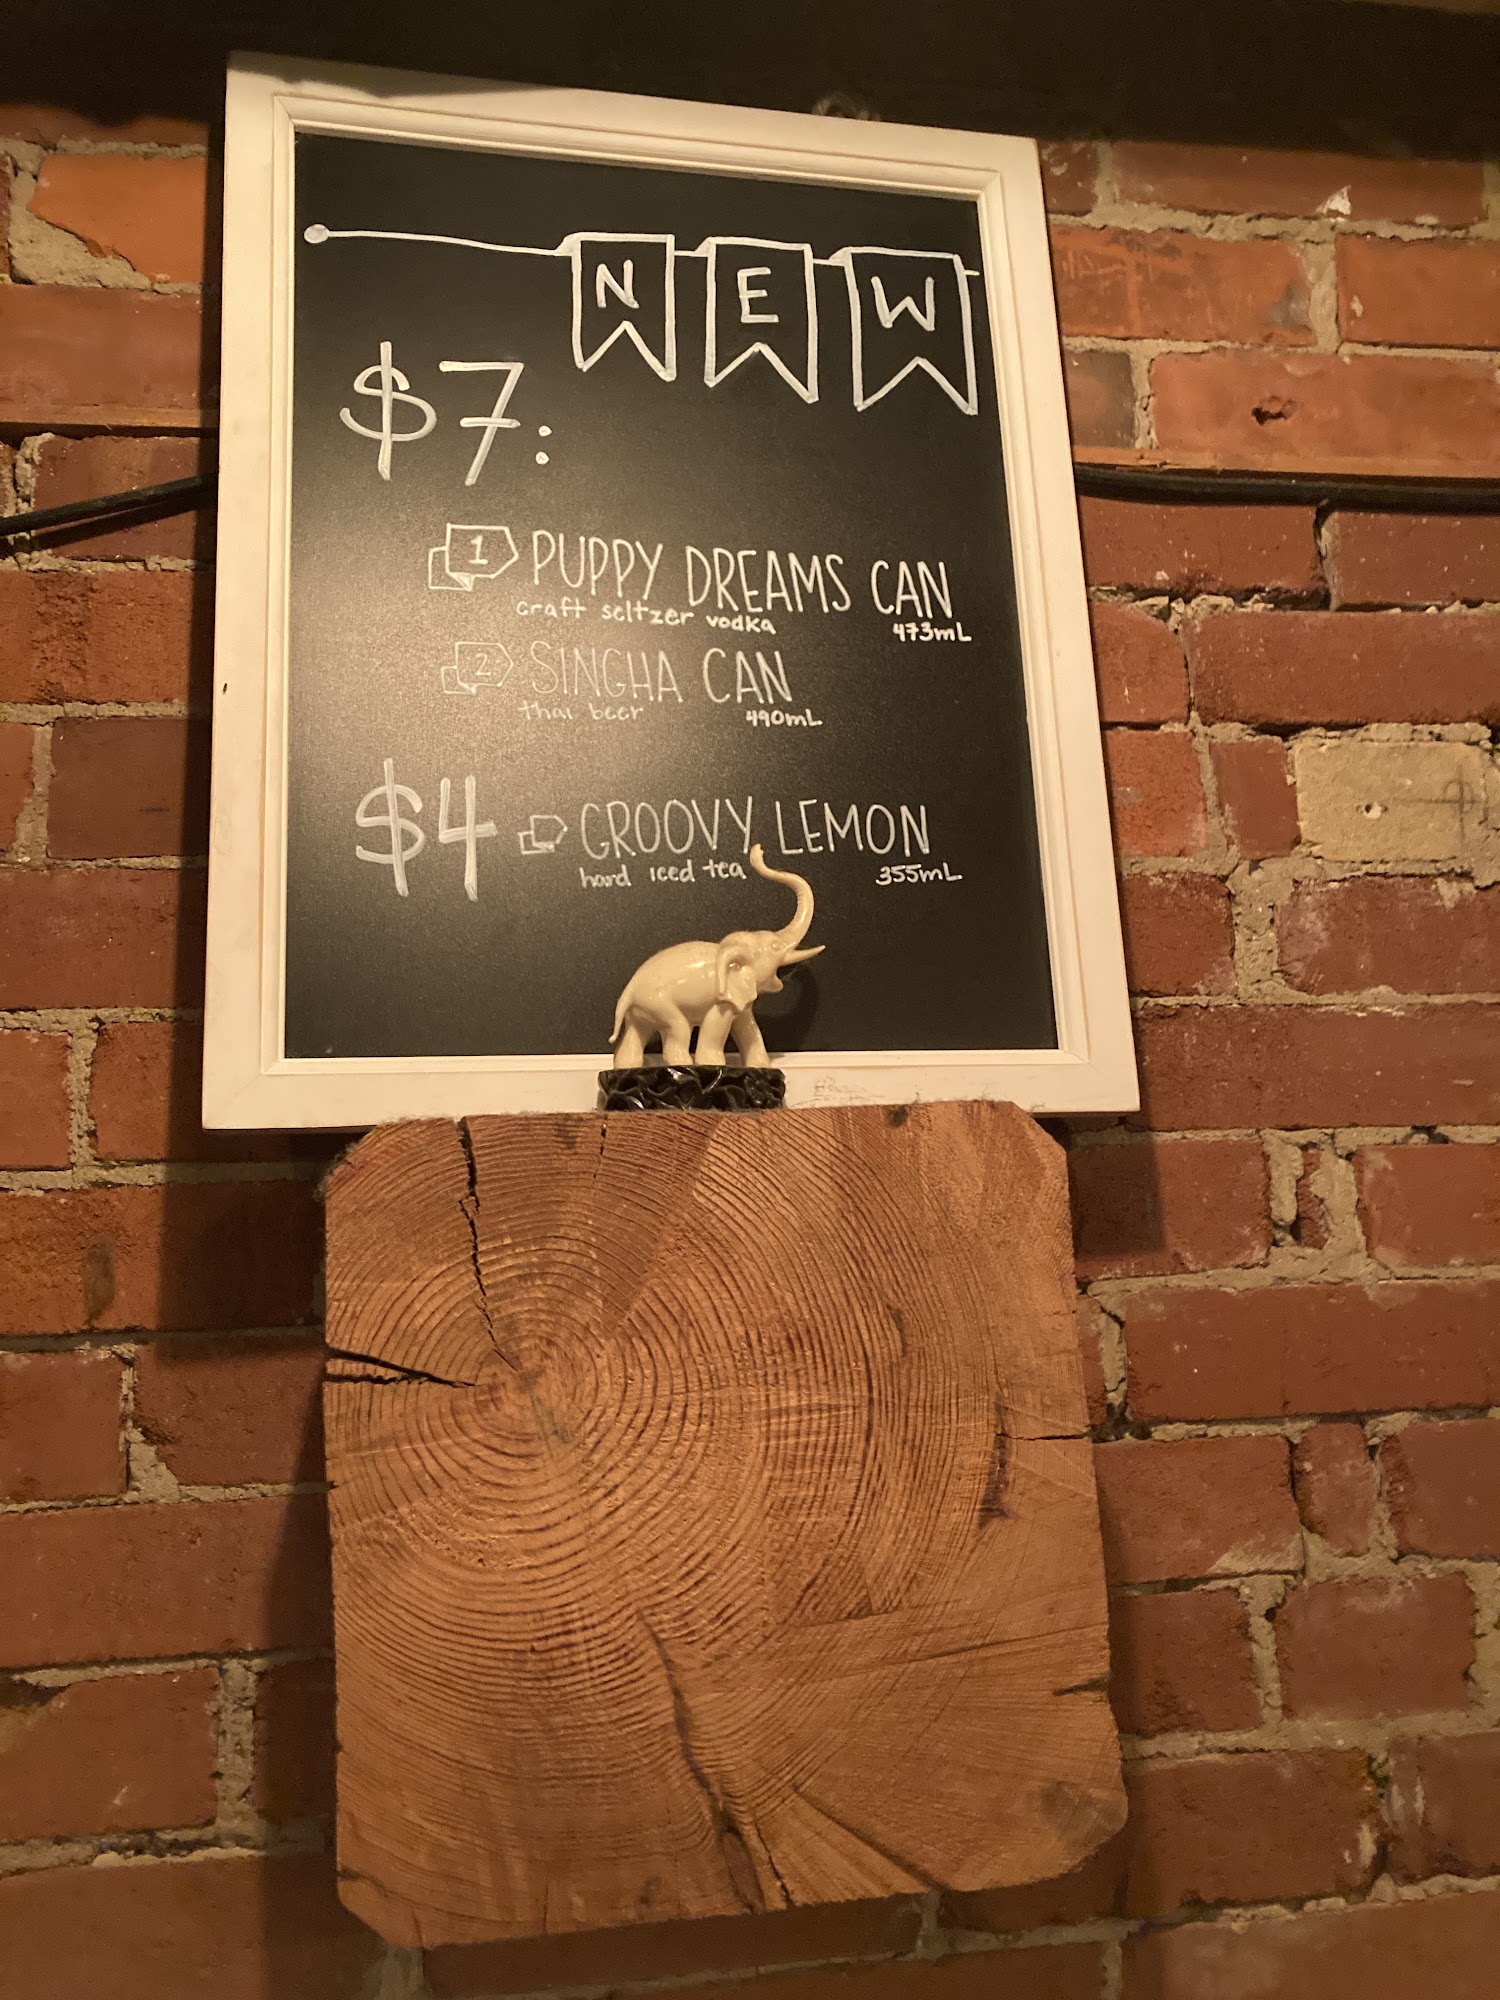 NEW
$7:
1 PUPPY DREAMS CAN
craft seltzer vodka 473mL
2 SINGHA CAN
thai beer 490mL
$4 GROOVY LEMON
hard iced tea 355mL